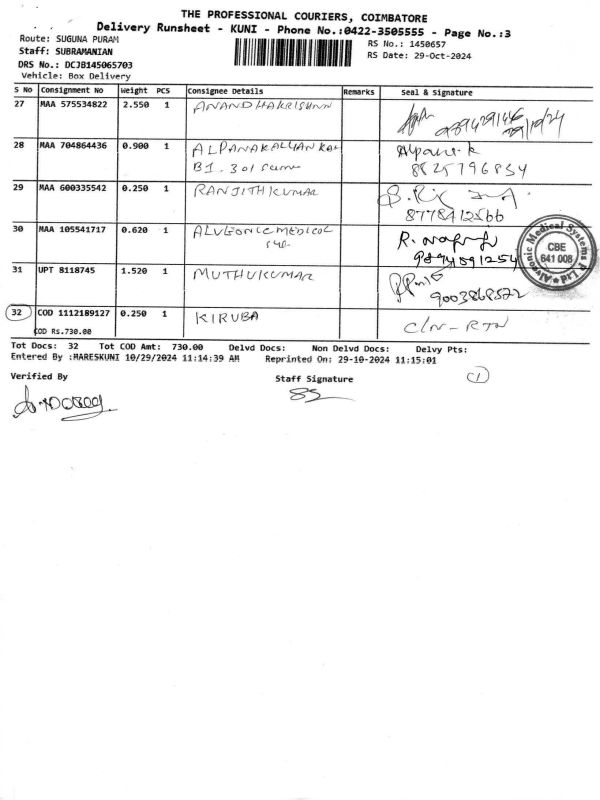 THE PROFESSIONAL COURIERS, COIMBATORE
Delivery Runsheet - KUNI - Phone No.:0422-3505555 - Page No.:3
Route: SUGUNA PURAM
RS No.: 1450657
Staff: SUBRAMANIAN
RS Date: 29-Oct-2024
DRS No.: DCJB145065703
Vehicle: Box Delivery
S No Consignment No Weight PCS Consignee Details Remarks Seal & Signature
27 MAA 575534822 2.550 1 ANANDHAKRISHNN
29/10/24
28 MAA 704864436 0.900 1 ALPANAKALYANKAR
B1. 301
8825796834
29 MAA 600335542 0.250 1 RANJITHKUMAR
8778412566
30 MAA 105541717 0.620 1 ALVEONICMEDICAL
9894591254
Alveonic Medical Systems P Ltd
CBE
641 008
31 UPT 8118745 1.520 1 MUTHUKUMAR
9003868522
32 COD 1112189127 0.250 1 KIRUBA C/N-RTN
COD Rs.730.00
Tot Docs: 32 Tot COD Amt: 730.00 Delvd Docs: Non Delvd Docs: Delvy Pts:
Entered By :HARESKUNI 10/29/2024 11:14:39 AM Reprinted On: 29-10-2024 11:15:01
Verified By
Staff Signature
1